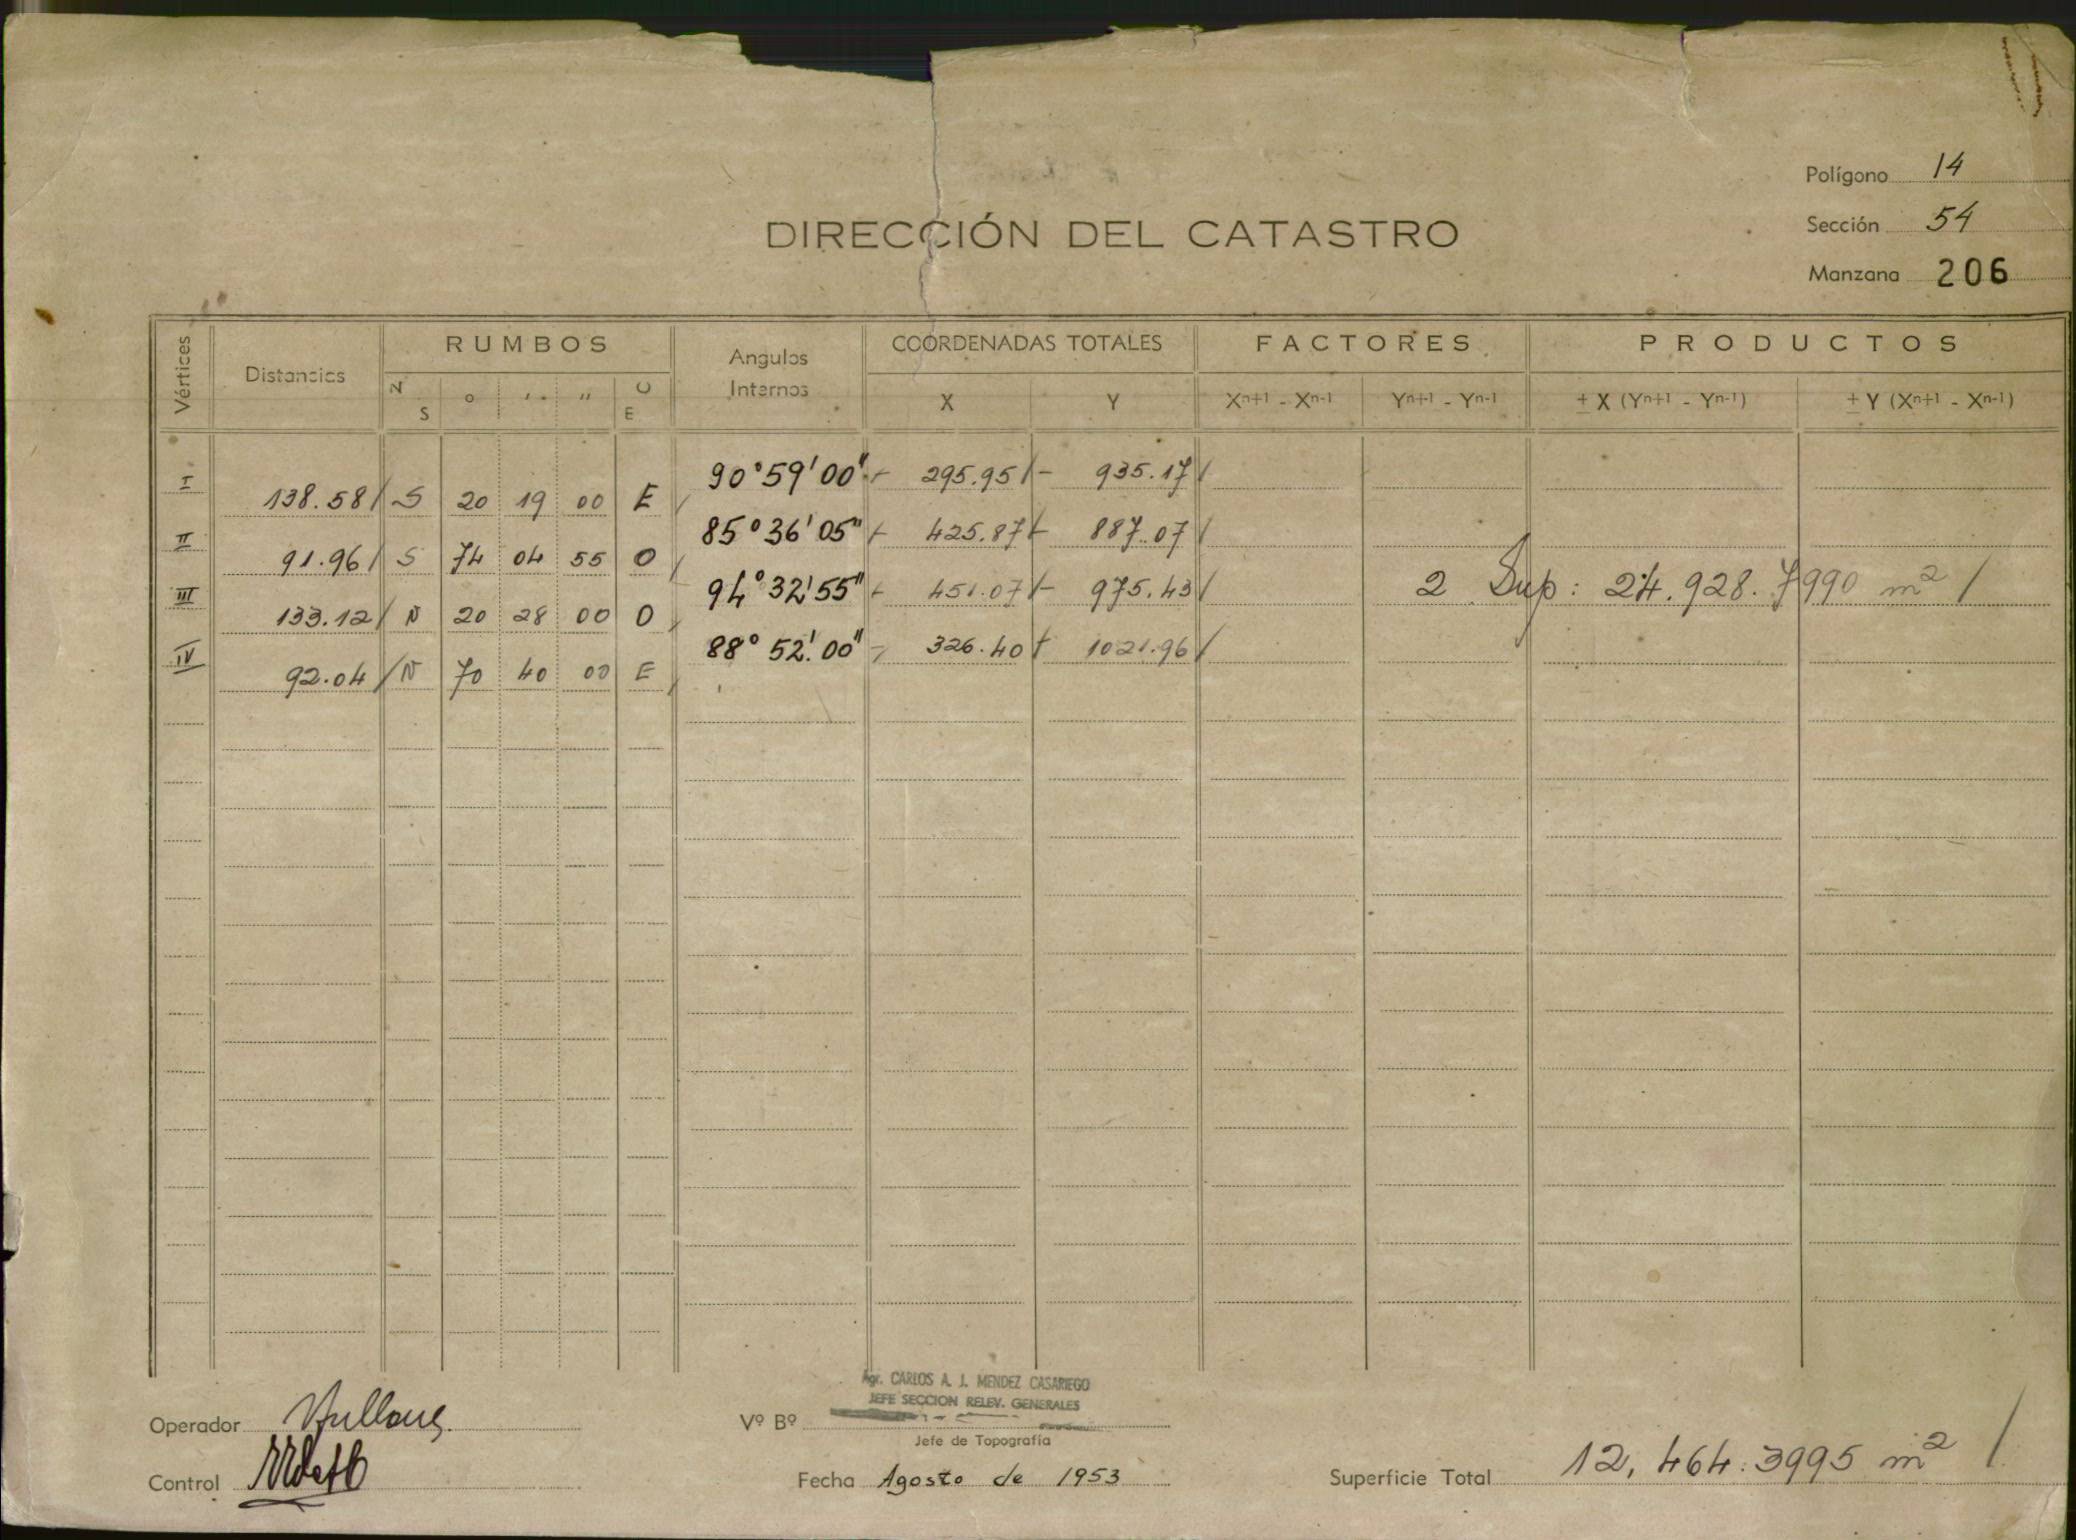 Polígono 14
Sección 54
Manzana 206
DIRECCIÓN DEL CATASTRO
Vértices Distancias RUMBOS Angulos Internos COORDENADAS TOTALES FACTORES PRODUCTOS
N S ° ' " O E X Y Xn+1 - Xn-1 Yn+1 - Yn-1 ± X (Yn+1 - Yn-1) ± Y (Xn+1 - Xn-1)
I 90°59'00" - 295.95 / - 935.17 /
138.58 / S 20 19 00 E /
II 85°36'05" + 425.87 / - 887.07 /
91.96 / S 74 04 55 O /
III 94°32'55" + 451.07 / - 975.43 /
2 Sup: 24.928.7990 m² /
133.12 / N 20 28 00 O /
IV 88°52'00" - 326.40 / + 1021.96 /
92.04 / N 70 40 00 E /
Agr. CARLOS A. J. MENDEZ CASARIEGO
JEFE SECCION RELEV. GENERALES
Operador
Vº Bº
Jefe de Topografía
Control
Fecha Agosto de 1953
Superficie Total 12,464.3995 m² /